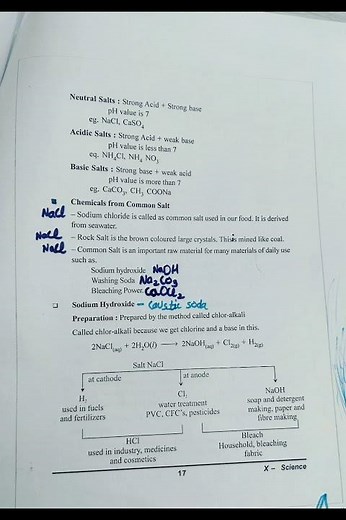 Neutral Salts : Strong Acid + Strong base
pH value is 7
eg. NaCl, CaSO4
Acidic Salts : Strong Acid + weak base
pH value is less than 7
eq. NH4Cl, NH4 NO3
Basic Salts : Strong base + weak acid
pH value is more than 7
eg. CaCO3, CH3 COONa
Chemicals from Common Salt
NaCl – Sodium chloride is called as common salt used in our food. It is derived
from seawater.
NaCl – Rock Salt is the brown coloured large crystals. This is mined like coal.
NaCl – Common Salt is an important raw material for many materials of daily use
such as.
Sodium hydroxide NaOH
Washing Soda Na2CO3
Bleaching Power CaOCl2
❑ Sodium Hydroxide – Caustic soda
Preparation : Prepared by the method called chlor-alkali
Called chlor-alkali because we get chlorine and a base in this.
2NaCl(aq) + 2H2O(l) ⟶ 2NaOH(aq) + Cl2(g) + H2(g)
Salt NaCl
at cathode at anode
H2 Cl2 NaOH
used in fuels water treatment soap and detergent
and fertilizers PVC, CFC's, pesticides making, paper and
fibre making
HCl Bleach
used in industry, medicines Household, bleaching
and cosmetics fabric
17
X – Science